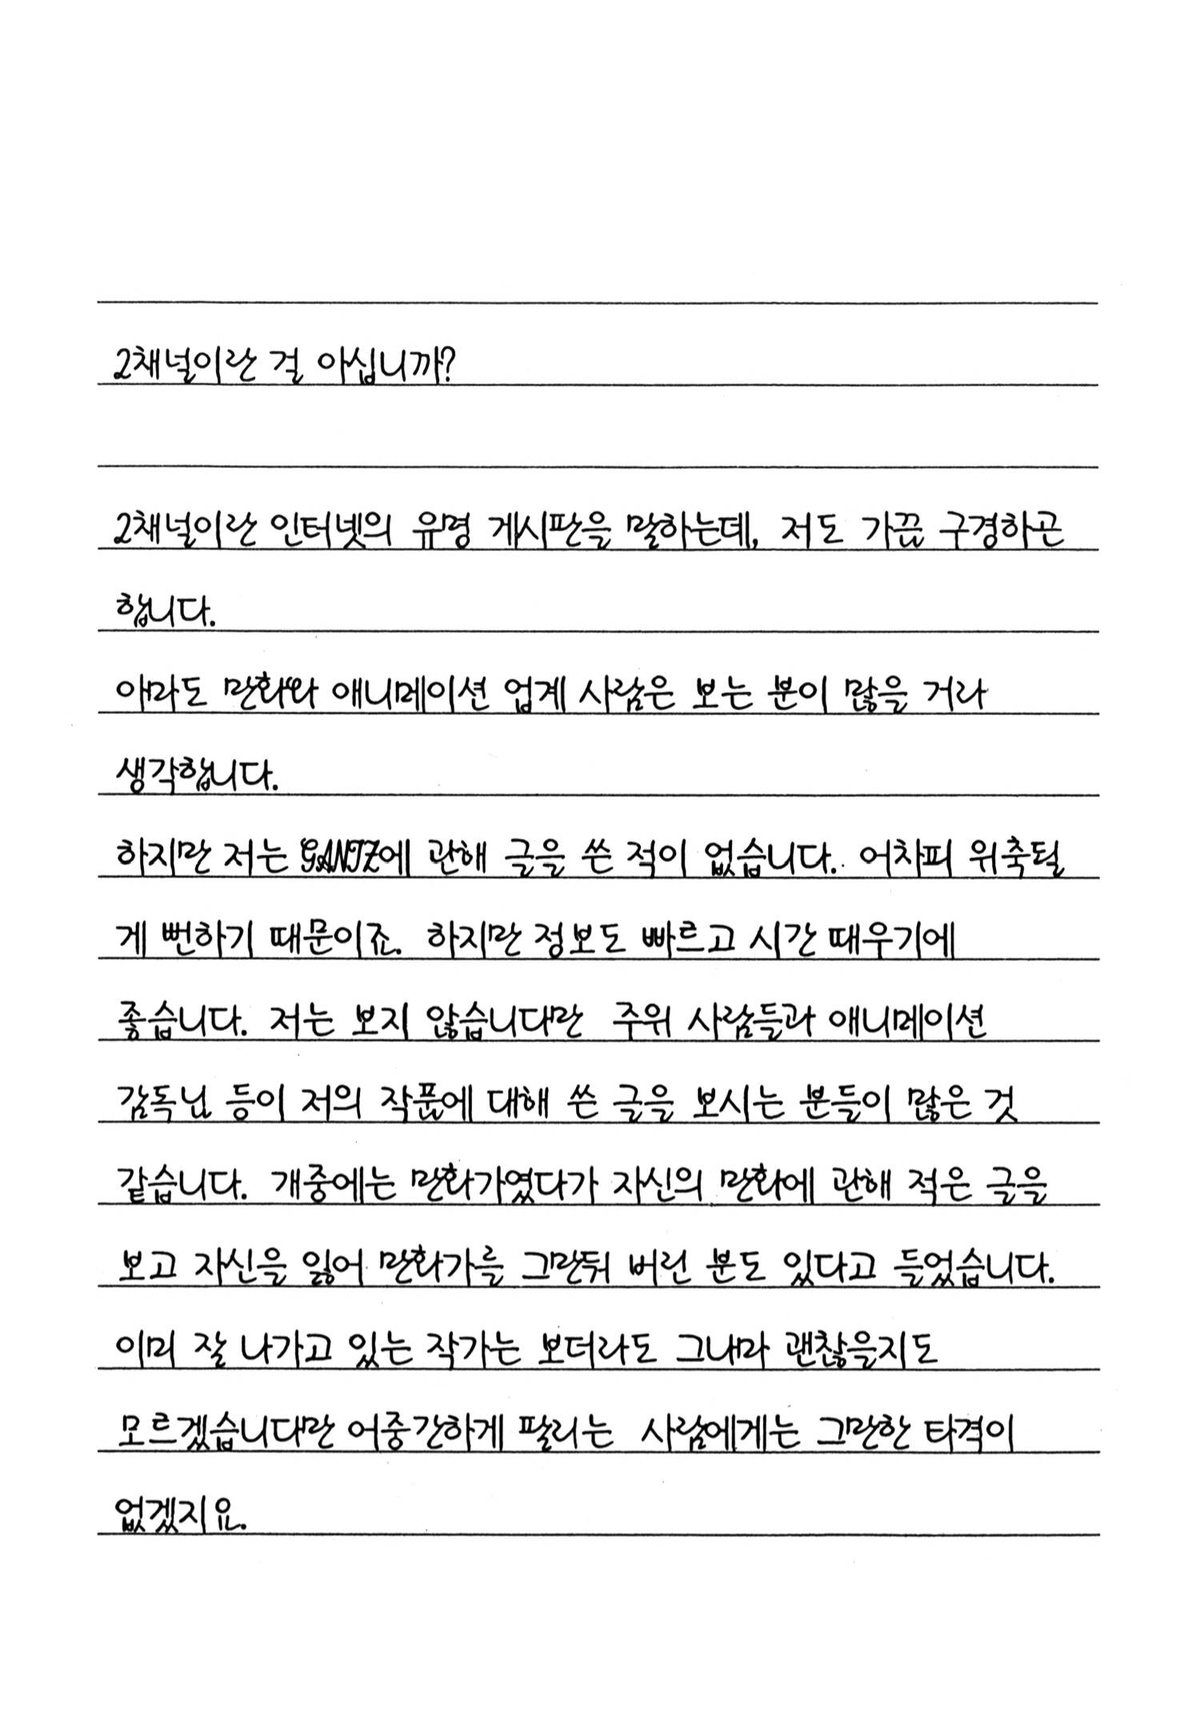 2채널이란 걸 아십니까?
2채널이란 인터넷의 유명 게시판을 말하는데, 저도 가끔 구경하곤
합니다.
아마도 만화와 애니메이션 업계 사람은 보는 분이 많을 거라
생각합니다.
하지만 저는 GANTZ에 관해 글을 쓴 적이 없습니다. 어차피 위축될
게 뻔하기 때문이죠. 하지만 정보도 빠르고 시간 때우기에
좋습니다. 저는 보지 않습니다만 주위 사람들과 애니메이션
감독님 등이 저의 작품에 대해 쓴 글을 보시는 분들이 많은 것
같습니다. 개중에는 만화가였다가 자신의 만화에 관해 적은 글을
보고 자신을 잃어 만화가를 그만둬 버린 분도 있다고 들었습니다.
이미 잘 나가고 있는 작가는 보더라도 그나마 괜찮을지도
모르겠습니다만 어중간하게 팔리는 사람에게는 그만한 타격이
없겠지요.